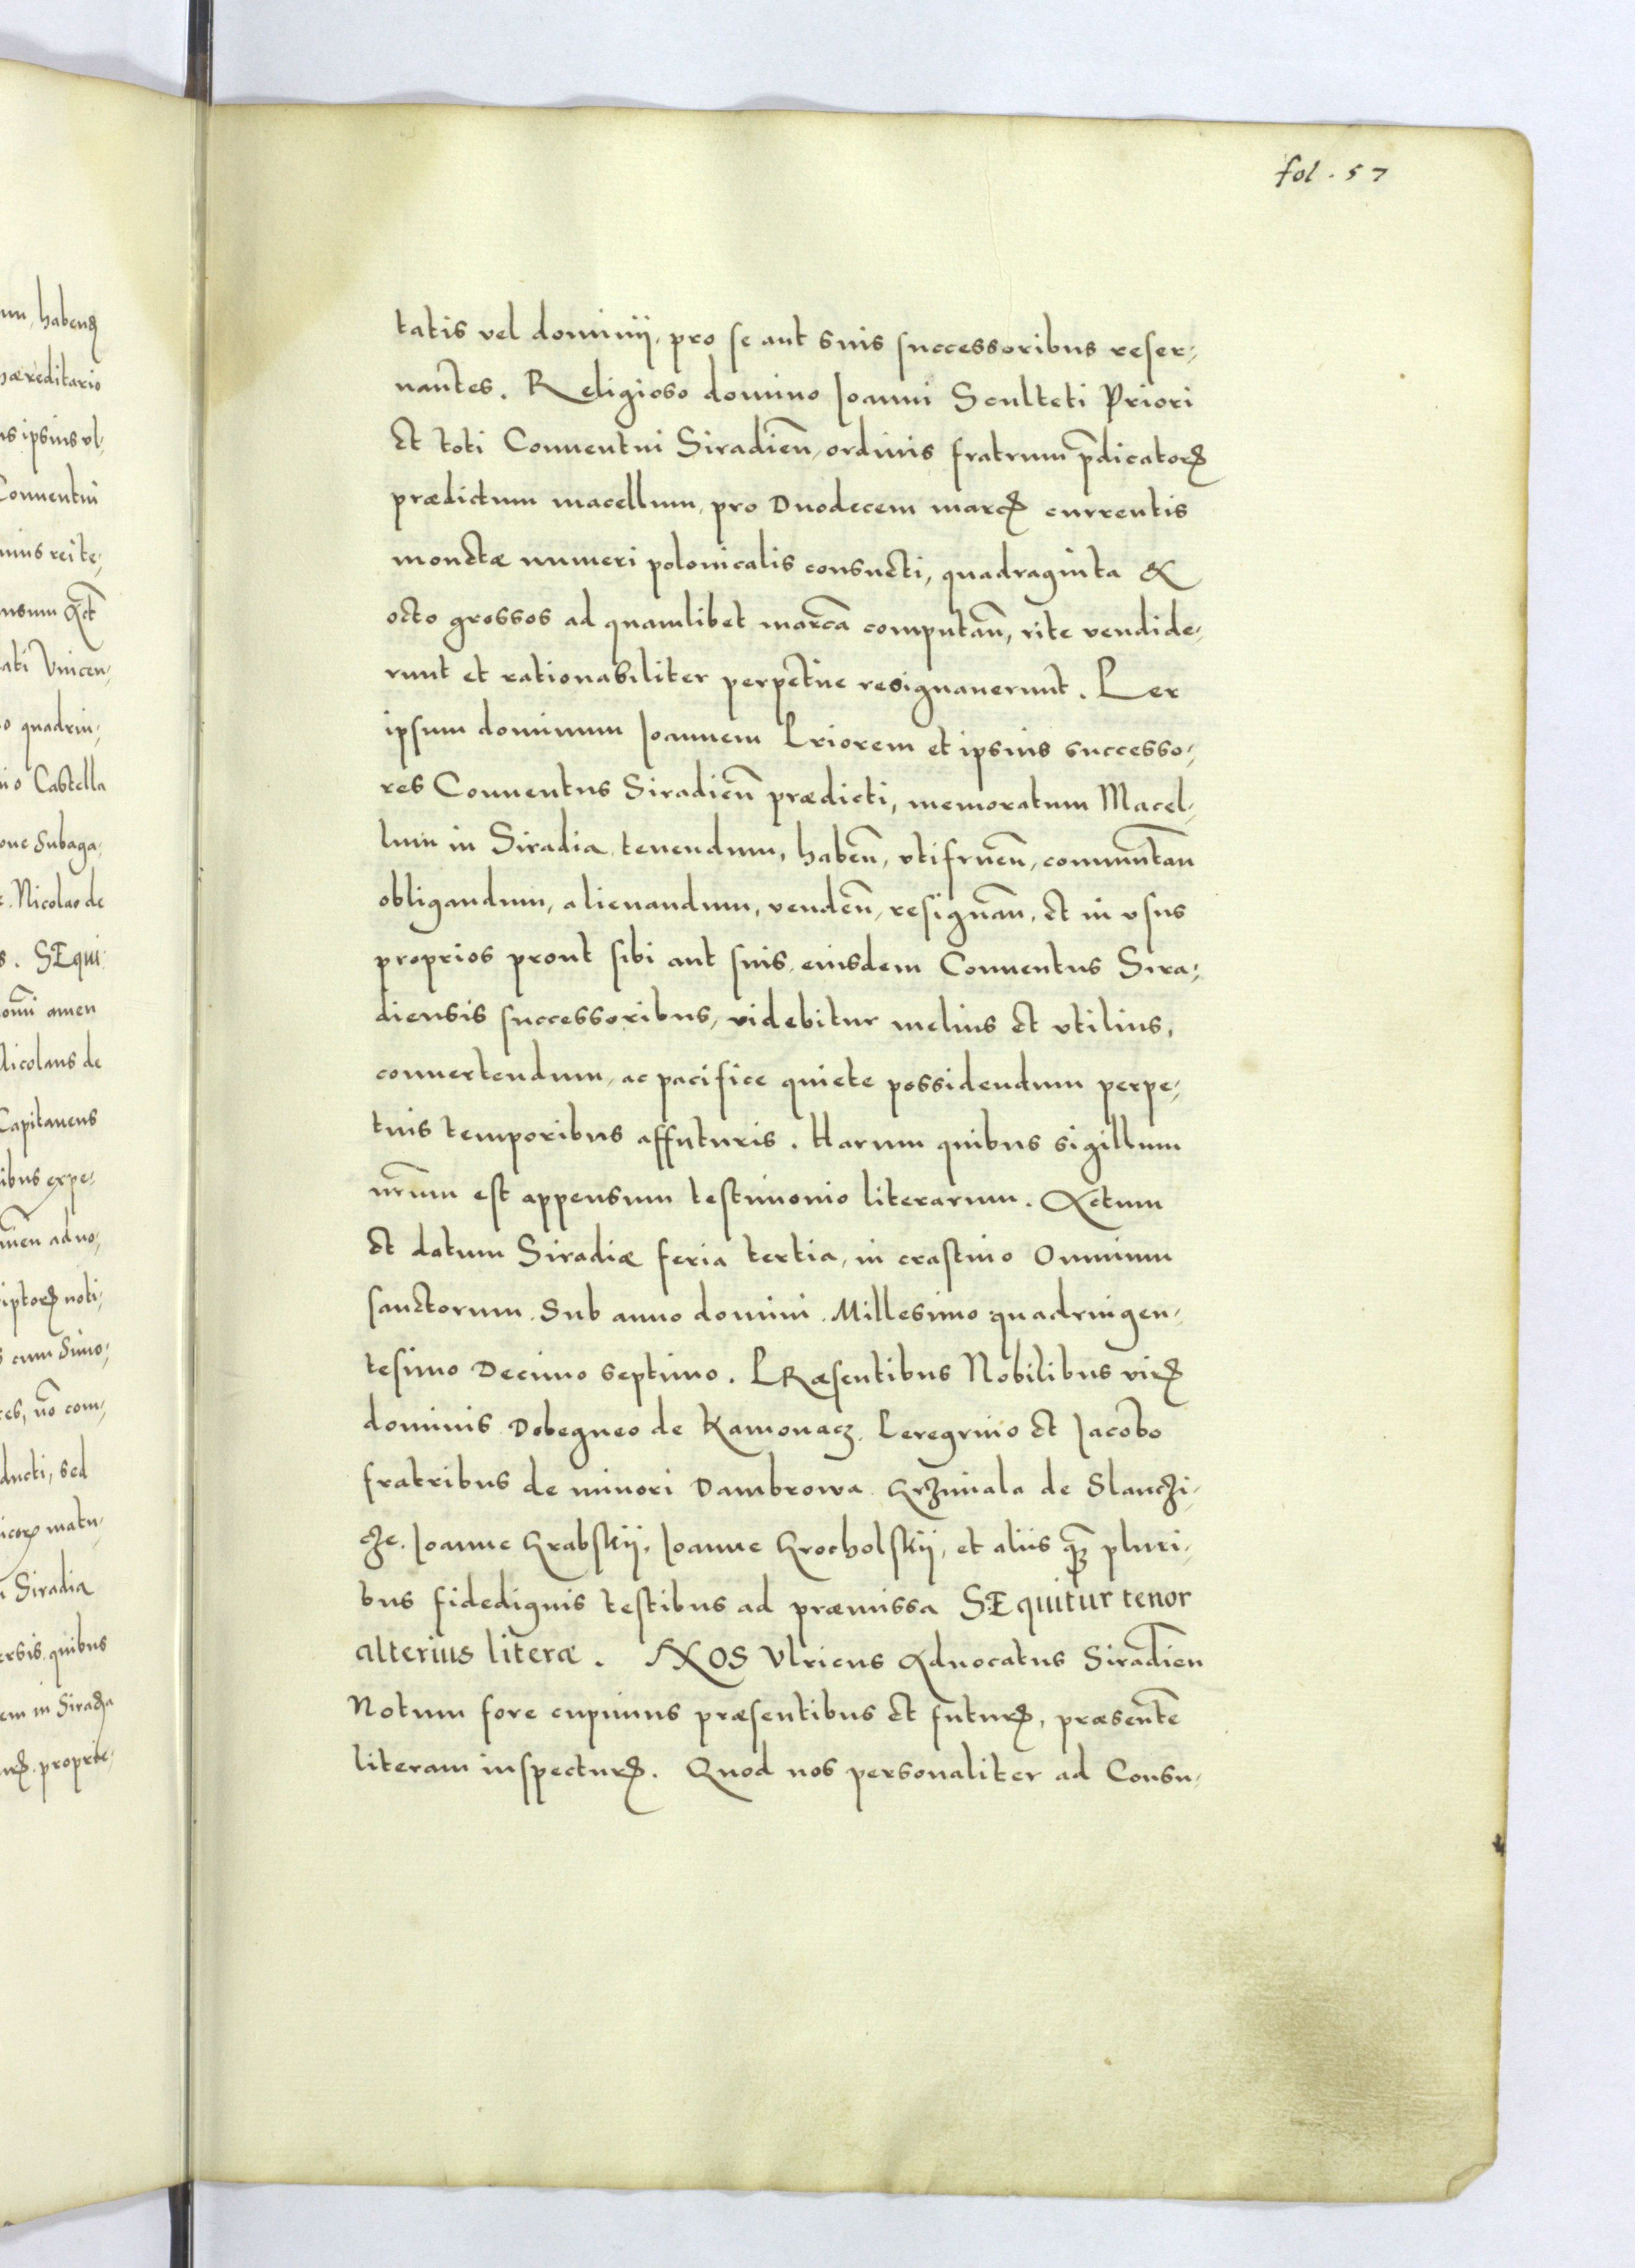 fol. 57
tatis vel dominij, pro se aut suis successoribus reser,
uantes. Religioso domino Joanni Sculteti Priori
et toti Conuentui Siradien̄, ordinis fratrum p̄dicatorꝝ
prædictum macellum, pro Duodecem marcꝭ currentis
monetæ numeri polonicalis consueti, quadraginta &
octo grossos ad quamlibet marcā computan̄, rite vendide,
runt et rationabiliter perpetue resignauerunt. Per
ipsum dominum Joannem Priorem et ipsius successo,
res Conuentus Siradien̄ prædicti, memoratum Macel,
lum in Siradia, tenendum, haben̄, vtifruen̄, commutan̄
obligandum, alienandum, venden̄, resignan̄, et in vsus
proprios prout sibi aut suis, eiusdem Conuentus Sira,
diensis successoribus, videbitur melius et vtilius,
conuertendum, ac pacifice quiete possidendum perpe,
tuis temporibus affuturis. Harum quibus sigillum
nr̄um est appensum testimonio literarum. Actum
et datum Siradiæ feria tertia, in crastino Omnium
sanctorum. Sub anno domini. Millesimo quadringen,
tesimo Decimo septimo. PRæsentibus Nobilibus virꝭ
dominis Dobegneo de Kamonacz. Peregrino et Jacobo
fratribus de minori Dambrowa Grzimala de Slanczi,
cze. Joanne Grabskij, Joanne Grocholskij, et aliis q̄ꝫ pluri,
bus fidedignis testibus ad præmissa SEquitur tenor
alterius literæ. NOS Vlricus Aduocatus Siradien̄
Notum fore cupimus præsentibus et futurꝭ, præsentē
literam inspecturꝭ. Quod nos personaliter ad Consu,